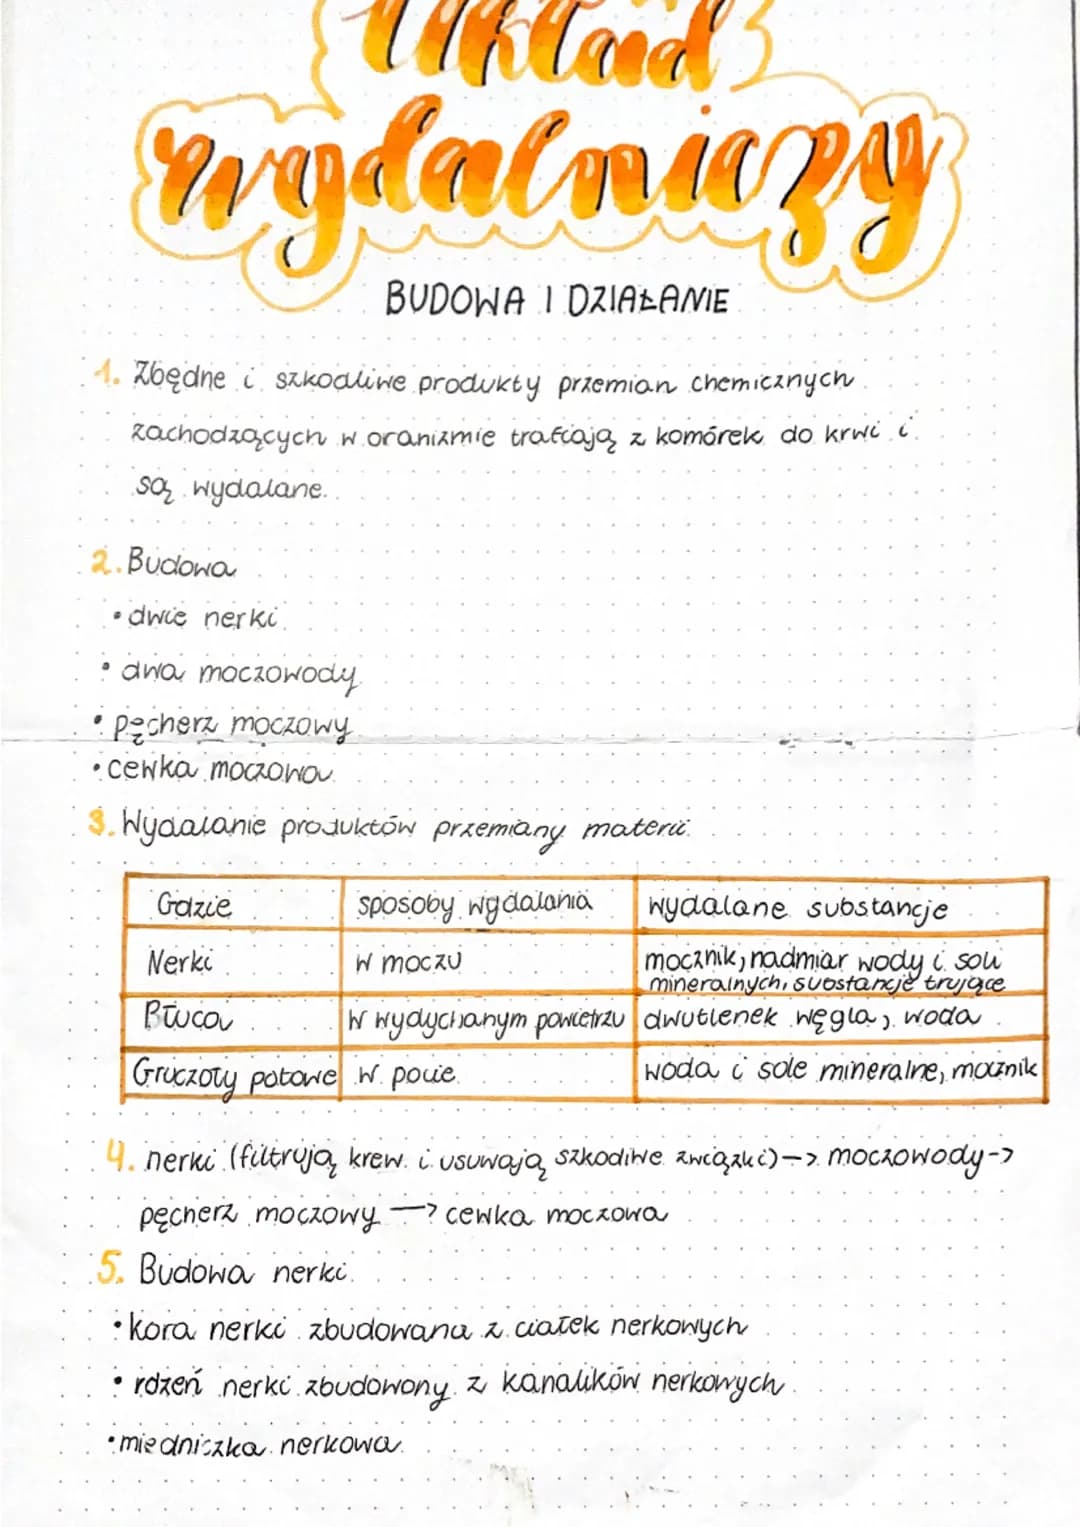 Układ
wydalniczy
BUDOWA I DZIAŁANIE
1. Zbędne i szkodliwe produkty przemian chemicznych
zachodzących w oranizmie trafiają z komórek do krwi i
są wydalane.
2. Budowa
• dwie nerki
• dwa moczowody
• pęcherz moczowy
• cewka moczowa
3. Wydalanie produktów przemiany materii
Gdzie sposoby wydalania wydalane substancje
Nerki w moczu mocznik, nadmiar wody i soli
mineralnych, substancje trujące
Płuca w wydychanym powietrzu dwutlenek węgla, woda
Gruczoły potowe w pocie woda i sole mineralne, mocznik
4. nerki (filtrują krew i usuwają szkodliwe związki) –> moczowody ->
pęcherz moczowy —> cewka moczowa
5. Budowa nerki
• kora nerki zbudowana z ciałek nerkowych
• rdzeń nerki zbudowony z kanalików nerkowych
• miedniczka nerkowa